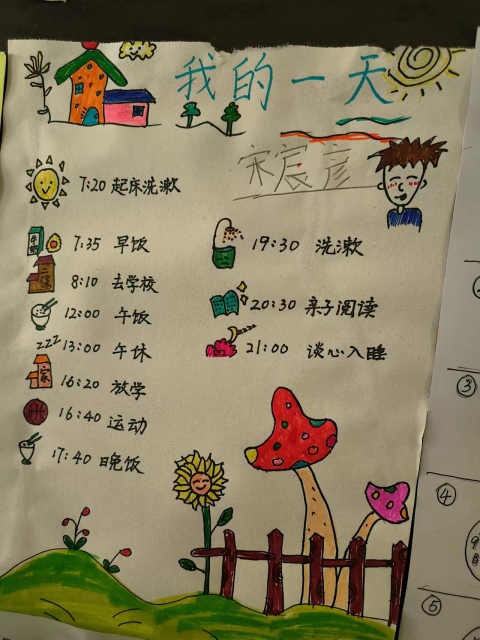 我的一天
宋宸彦
7:20 起床洗漱
7:35 早饭
8:10 去学校
12:00 午饭
zzz 13:00 午休
家 16:20 放学
16:40 运动
17:40 晚饭
19:30 洗漱
20:30 亲子阅读
21:00 谈心入睡
③
④
⑤